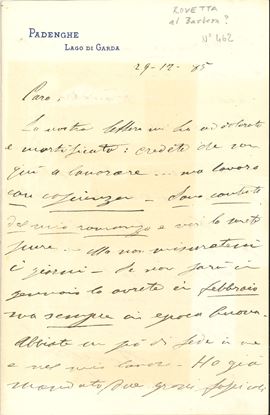 ROVETTA
al Barbera?
N° 462
PADENGHE
LAGO DI GARDA
29-12-85
Caro,
La vostra lettera mi ha addolorato
e mortificato: credete che son
qui a lavorare... ma lavoro
con coscienza. Sono contento
del mio romanzo e voi lo sarete
pure... Ma non misuratemi
i giorni. Se non sarà in
gennaio lo avrete in febbraio
ma sempre in epoca buona.
Abbiate un po' di fede in me
e nel mio lavoro. Ho già
mandato due grossi fascicoli